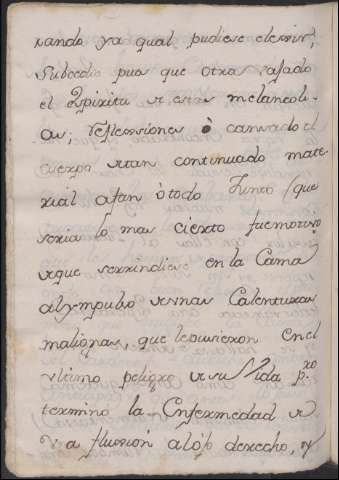 rando ya qual pudiese elexir,
Subcedio pues que otras pasado
el Espiritu de estas melancoli-
as, reflecsiones ò cansado el
cuerpo de tan continuado mate-
rial afan ò todo Junto (que
seria lo mas cierto fue motivo
de que serrindiese en la Cama
al ympulso de unas Calenturas
malignas, que le tuvieron en el
vltimo peligro de su Vida p.ro
termino la Enfermedad de
a fluxion al ojo derecho, y